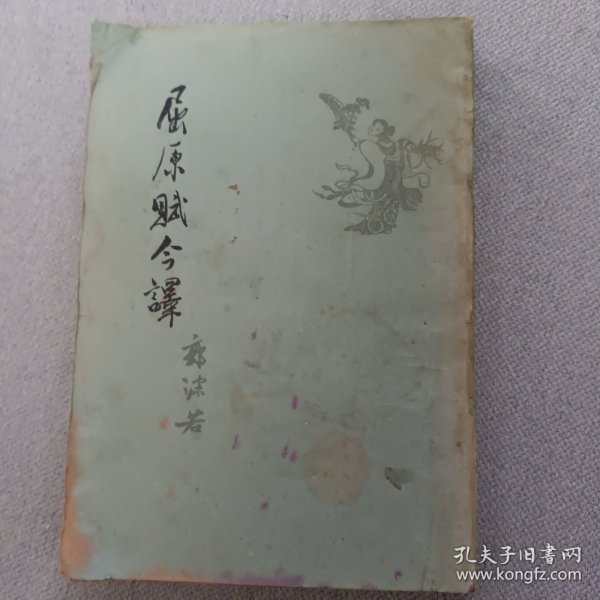 屈原賦今譯
郭沫若
孔夫子旧書网
www.kongfz.com